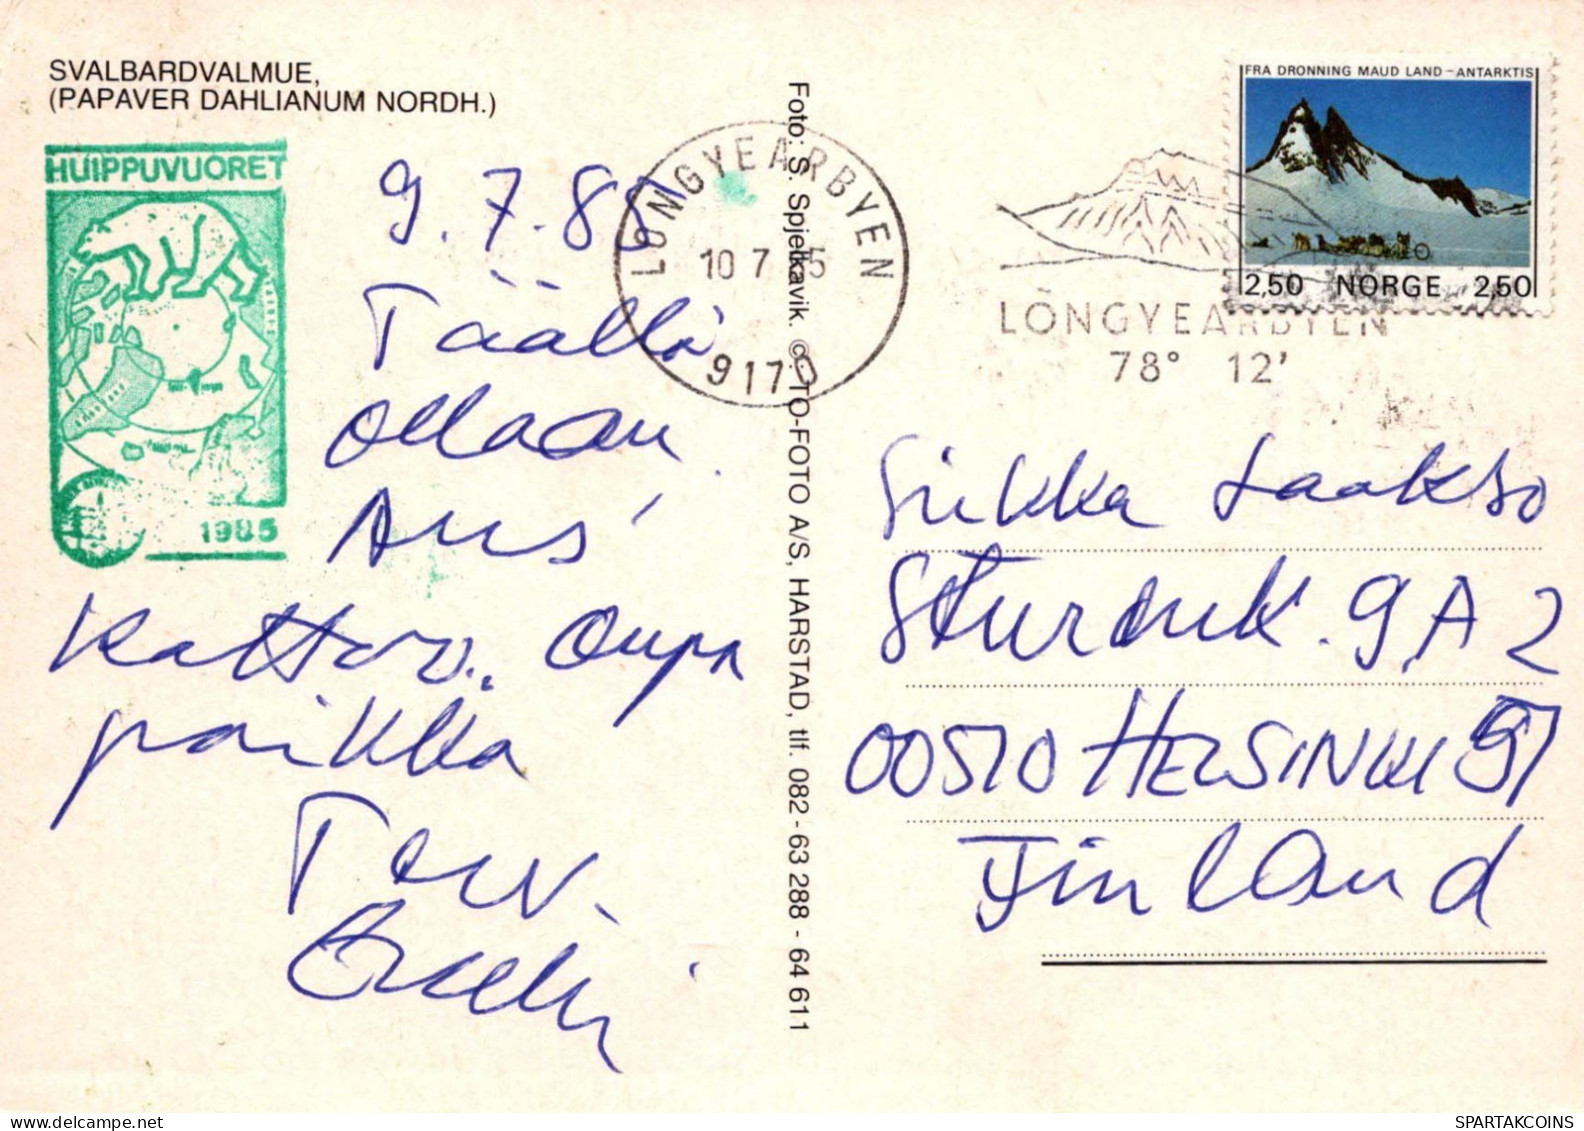 SVALBARDVALMUE,
(PAPAVER DAHLIANUM NORDH.)
HUIPPUVUORET
1985
9.7.85
Täällä
ollaan
kattoo. Oupa
paikka
Terv.
LONGYEARBYEN
10 7 5
9170
LONGYEARBYEN
78° 12'
FRA DRONNING MAUD LAND - ANTARKTIS
2,50 NORGE 2,50
Foto: S. Spjelkavik. © TO-FOTO A/S, HARSTAD, tlf. 082 - 63 288 - 64 611
Sirkka Laakso
9 A 2
00510 HELSINKI 51
Finland
SPARTAKCOINS.COM